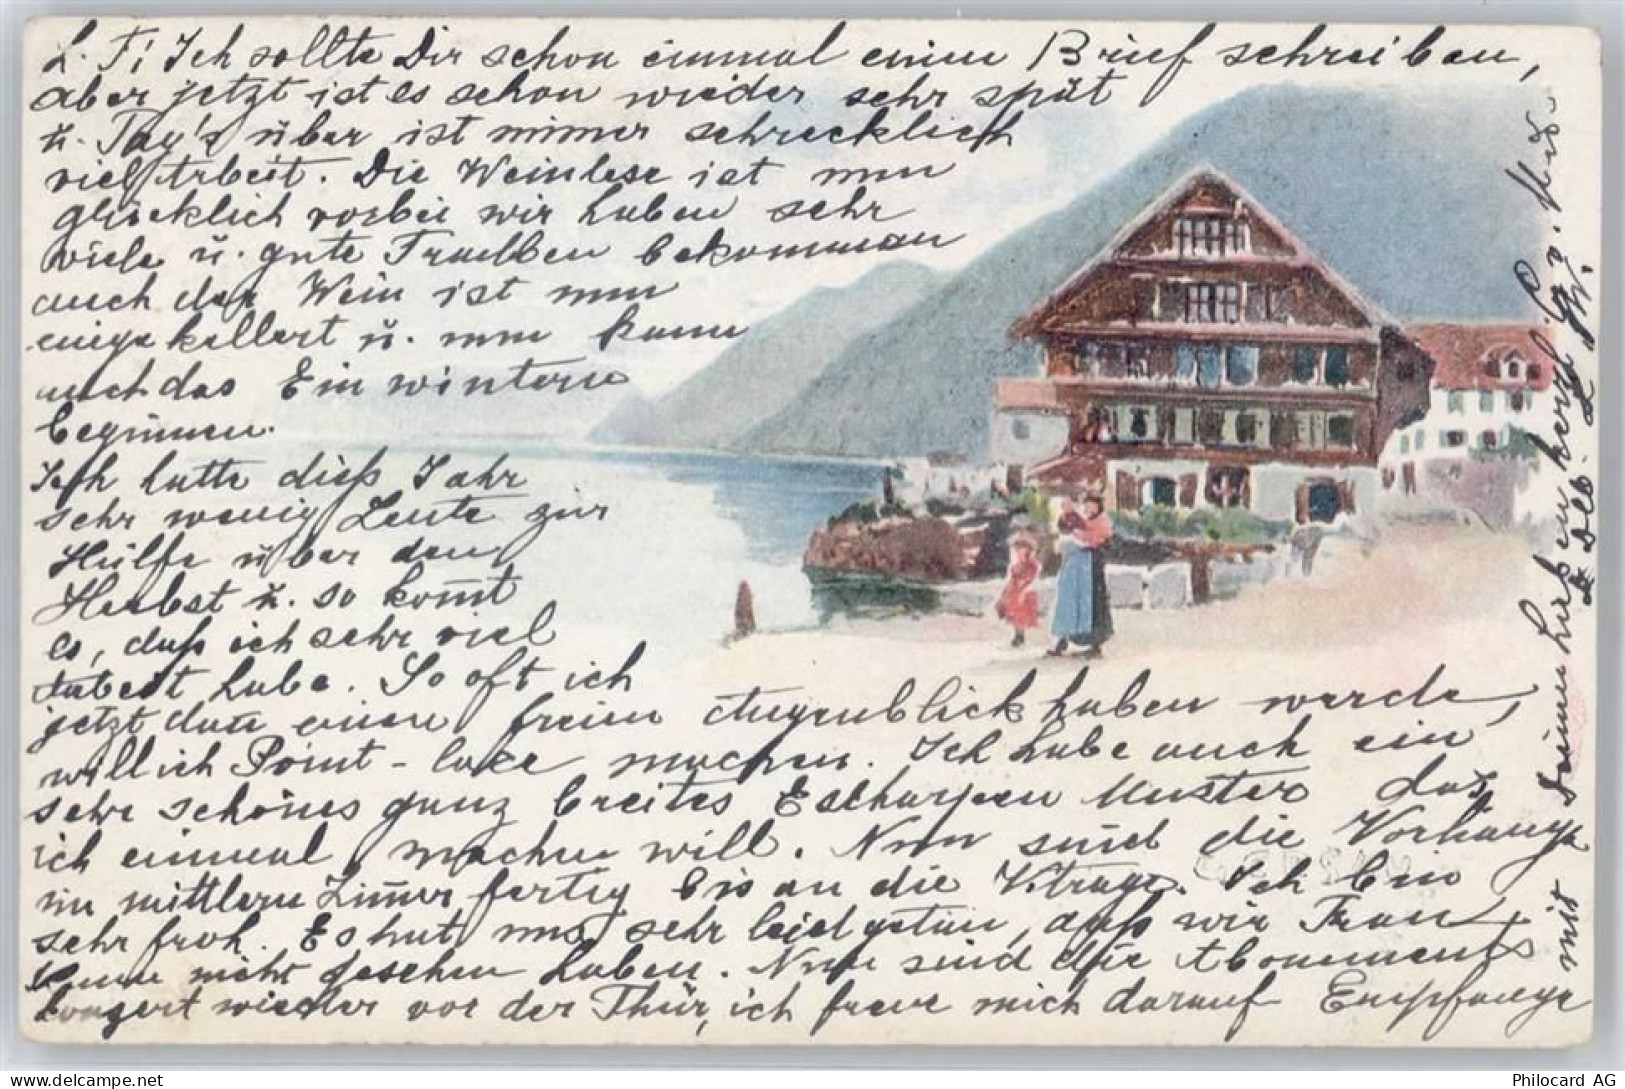 L. F! Ich sollte Dir schon einmal einen Brief schreiben,
aber jetzt ist es schon wieder sehr spät
u. Tag's über ist immer schrecklich
viel Arbeit. Die Weinlese ist nun
glücklich vorbei wir haben sehr
viele u. gute Traubben bekommen
auch der Wein ist nun
eingekellert u. nun kann
auch das Einwintern
beginnen.
Ich hatte dieß Jahr
sehr wenig Leute zur
Hülfe über den
Herbst u. so kom̄t
es, daß ich sehr viel
Arbeit habe. So oft ich
jetzt dann einen freien Augenblick haben werde,
will ich Point-lace machen. Ich habe auch ein
sehr schönes ganz breites Escharpen Muster das
ich einmal machen will. Nun sind die Vorhänge
im mittlern Zim̄er fertig bis an die
Ich bin
sehr froh. Es hat uns sehr leid getan, daß wir Frau
nicht gesehen haben. Nun sind die Abonnements
Konzert wieder vor der Thür, ich freue mich darauf Empfange
mit Deinen lieben herzl. Gr. v.
Philocard AG